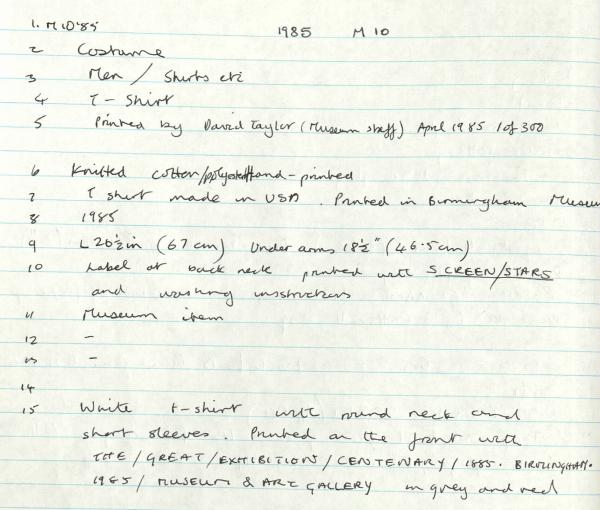 1. M10'85 1985 M 10
2 Costume
3 Men / Shirts etc
4 T-Shirt
5 Printed by David Taylor (Museum staff) April 1985 1 of 300
6 Knitted cotton/polyester hand-printed
7 T shirt made in USA. Printed in Birmingham Museum
8 1985
9 L 26½in (67 cm) Under arms 18½" (46.5cm)
10 Label at back neck printed with SCREEN/STARS
and washing instructions
11 Museum item
12 -
13 -
14
15 White t-shirt with round neck and
short sleeves. Printed on the front with
THE/GREAT/EXHIBITION/CENTENARY/1885. BIRMINGHAM.
1985/MUSEUM & ART GALLERY in grey and red